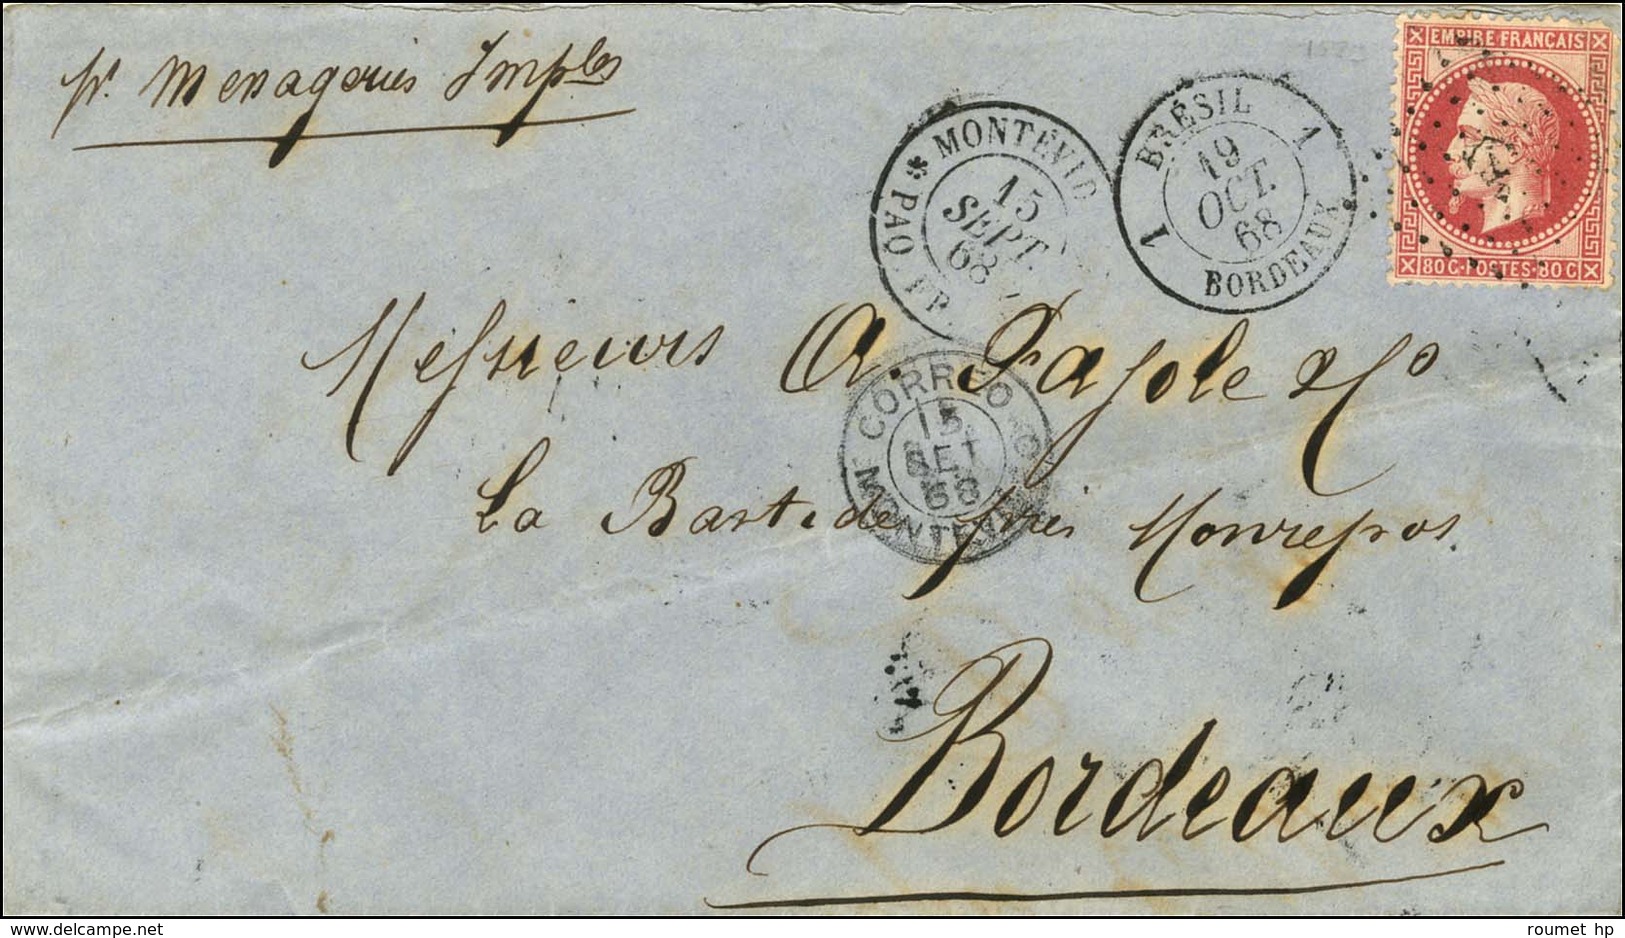 pr. Messageries Imples
EMPIRE FRANÇAIS
80 C · POSTES · 80 C
MONTEVID
PAQ. FR.
15
SEPT.
68
BRÉSIL
1 1
19
OCT.
68
BORDEAUX
Messieurs A. Fajole & Co
CORREO
15
SET
68
MONTEVIDEO
La Bastide près Monrepos
Bordeaux
delcampe.net
roumet hp